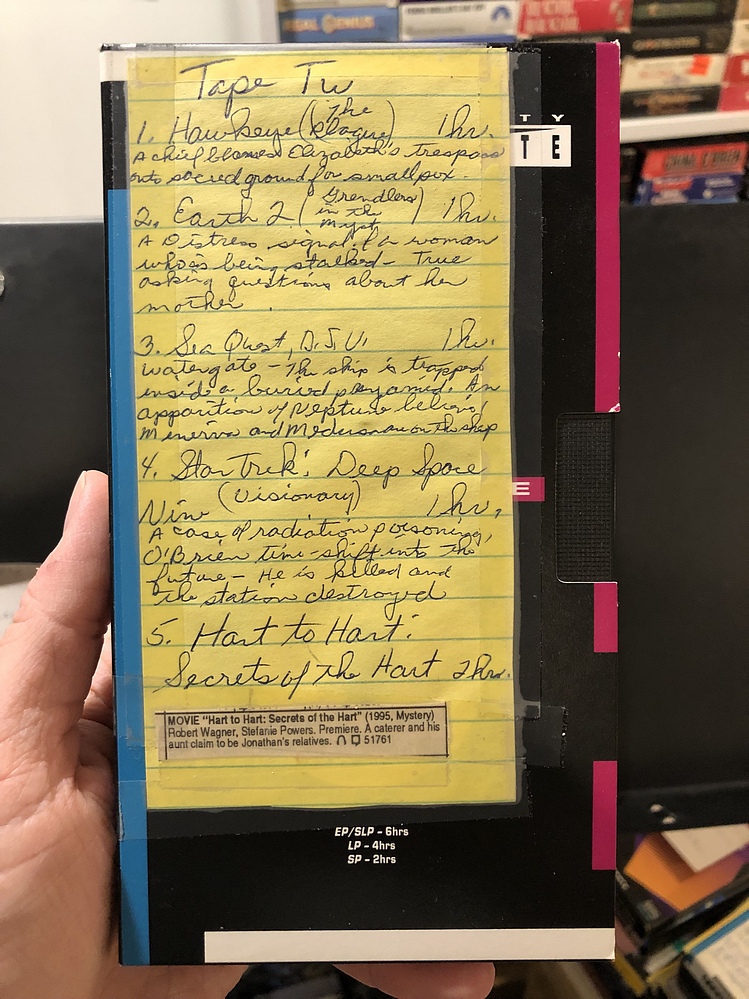 Tape Tw
1. Hawkeye (The Plague) 1hr.
A chief blames Elizabeth's trespass
onto sacred ground for smallpox.
2. Earth 2 (Grendlers in the Myst) 1hr.
A Distress signal f a woman
who's being stalked - True
asking questions about her
mother.
3. Sea Quest, D.S.V. 1hr.
watergate - The ship is trapped
inside a buried pyramid. An
apparition of Neptune
Minerva and Medusa are on the ship
4. Star Trek: Deep Space
Nine (Visionary) 1hr.
A case of radiation poisoning,
O'Brien time-shift into the
future - He is killed and
the station destroyed
5. Hart to Hart:
Secrets of the Hart 2hrs.
MOVIE "Hart to Hart: Secrets of the Hart" (1995, Mystery)
Robert Wagner, Stefanie Powers. Premiere. A caterer and his
aunt claim to be Jonathan's relatives. 51761
TY
TE
E
EP/SLP - 6hrs
LP - 4hrs
SP - 2hrs